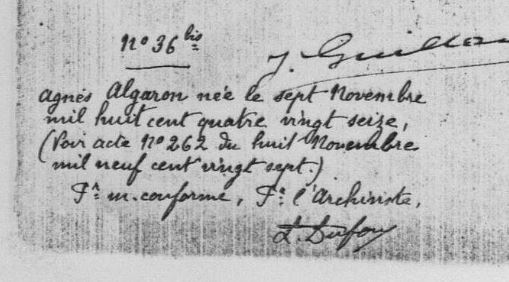 N° 36 bis
J. Guillon
Agnès Algaron née le sept Novembre
mil huit cent quatre vingt seize,
(Voir acte N° 262 du huit Novembre
mil neuf cent vingt sept.)
Pr m. conforme, Pr l'Archiviste,
L. Dufour